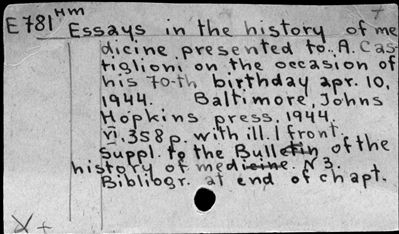 Hm
E781 Essays in the history of me
dicine presented to. A. Cas-
tiglioni on the occasion of
his 70-th birthday apr. 10,
1944. Baltimore, Johns
Hopkins press, 1944.
VI, 358 p. with ill. 1 front.
Suppl. to the Bulletin of the
history of medicine. N 3.
Biblibogr. at end of chapt.